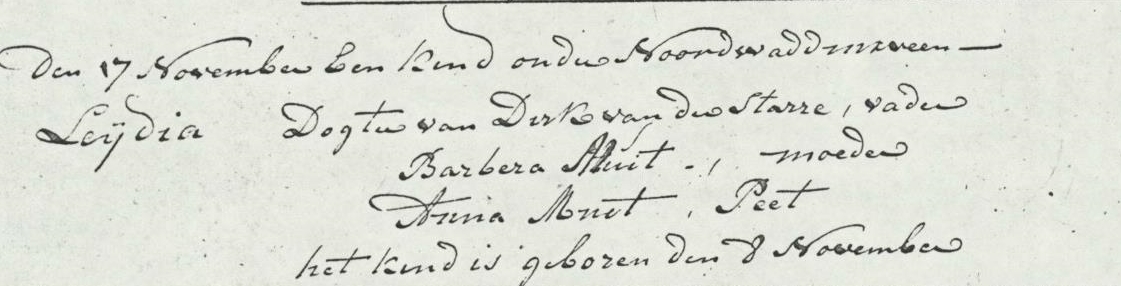 Den 17 November Een kind onder Noordwaddinxveen —
Leijdia Dogter van Dirk van der Starre, vader
Barbera Muit -, moeder
Anna Muit, Peet
het kind is geboren den 8 November